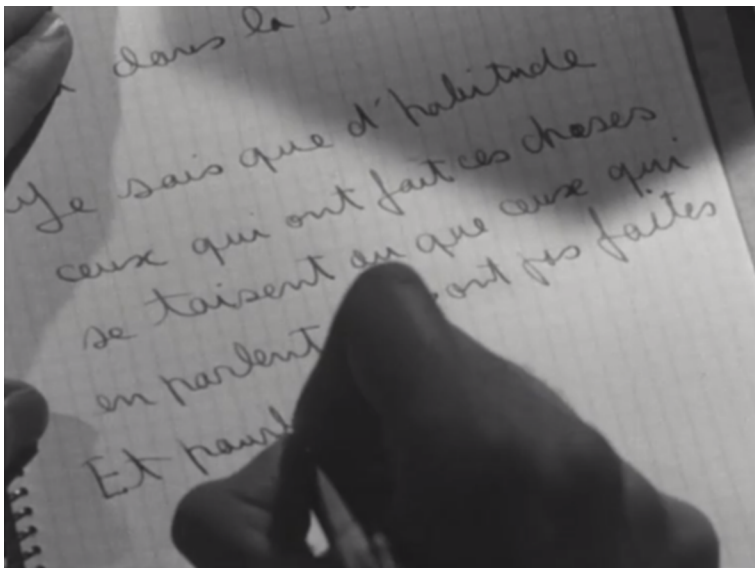 dans la
Je sais que d'habitude
ceux qui ont fait ces choses
se taisent ou que ceux qui
en parlent ont pas faites
Et pour